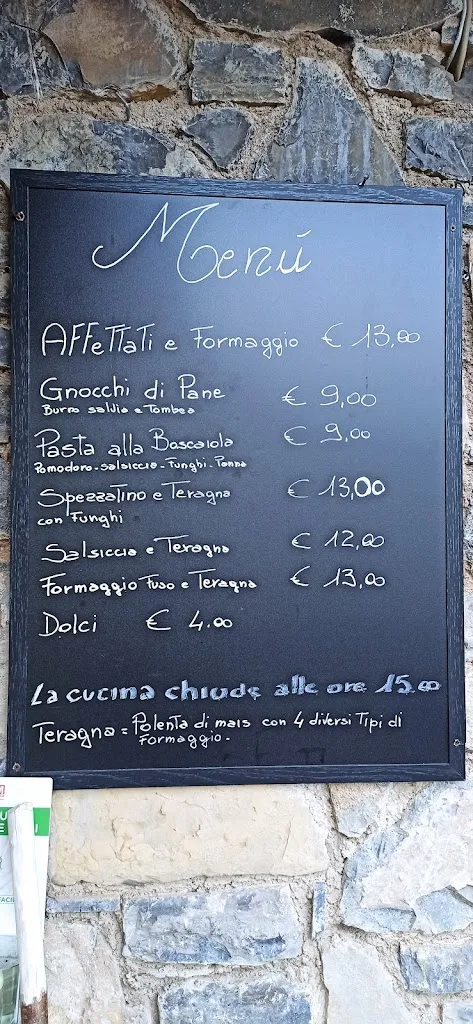 Menú
Affettati e Formaggio € 13,00
Gnocchi di Pane € 9,00
Burro salvia e Tombea
Pasta alla Boscaiola € 9,00
Pomodoro - Salsiccia - Funghi - Panna
Spezzatino e Teragna € 13,00
con Funghi
Salsiccia e Teragna € 12,00
Formaggio Fuso e Teragna € 13,00
Dolci € 4.00
La cucina chiude alle ore 15.00
Teragna = Polenta di mais con 4 diversi Tipi di
Formaggio.